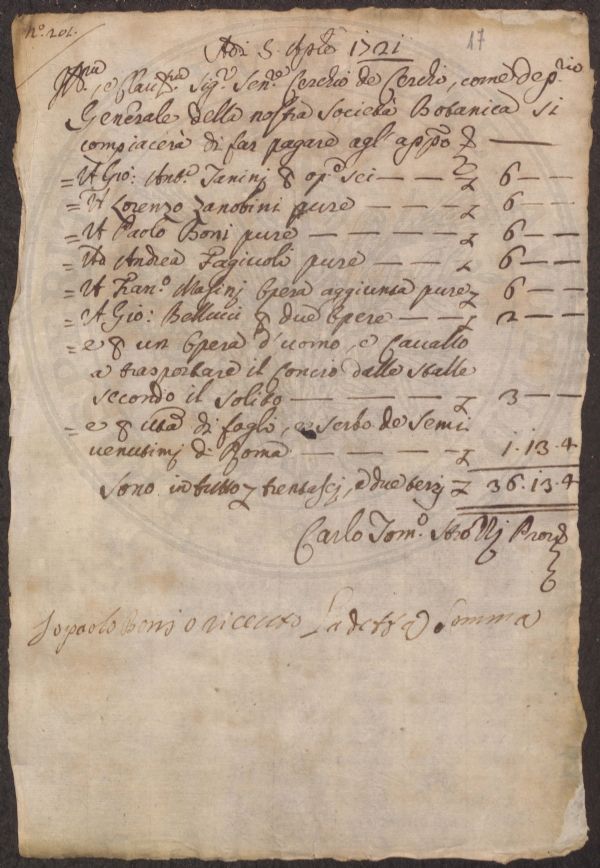 N.º 201.
17
Adi 5. Aple 1721
Ill.mo, e Clariss.mo Sig.r Sen.re Cerchio de Cerchi, come dep.rio
Generale della nostra Società Botanica si
compiacerà di far pagare agl' app.o
= A Gio: Ant.o Janinj p op.e sei — — 6 — —
= A Lorenzo Zanobini pure — — — 6 — —
= A Paolo Boni pure — — — — 6 — —
= Ad Andrea Fagiuoli pure — — — 6 — —
= A Fran.o Masinj Opera aggiunta pure 6 — —
= A Gio: Bellucci p due Opere — — 2 — —
= e p un Opera d'uomo, e Cavallo
a trasportare il Concio dalle stalle
secondo il solito — — — — — 3 — —
= e p di fogli, e serbo de Semi
venutimj di Roma — — — — 1.13.4
Sono in tutto trentasej, e due terzj 36.13.4
Carlo Tom.o Strozzj Prov.re
Io paolo Bonj o riceuto La detta Somma